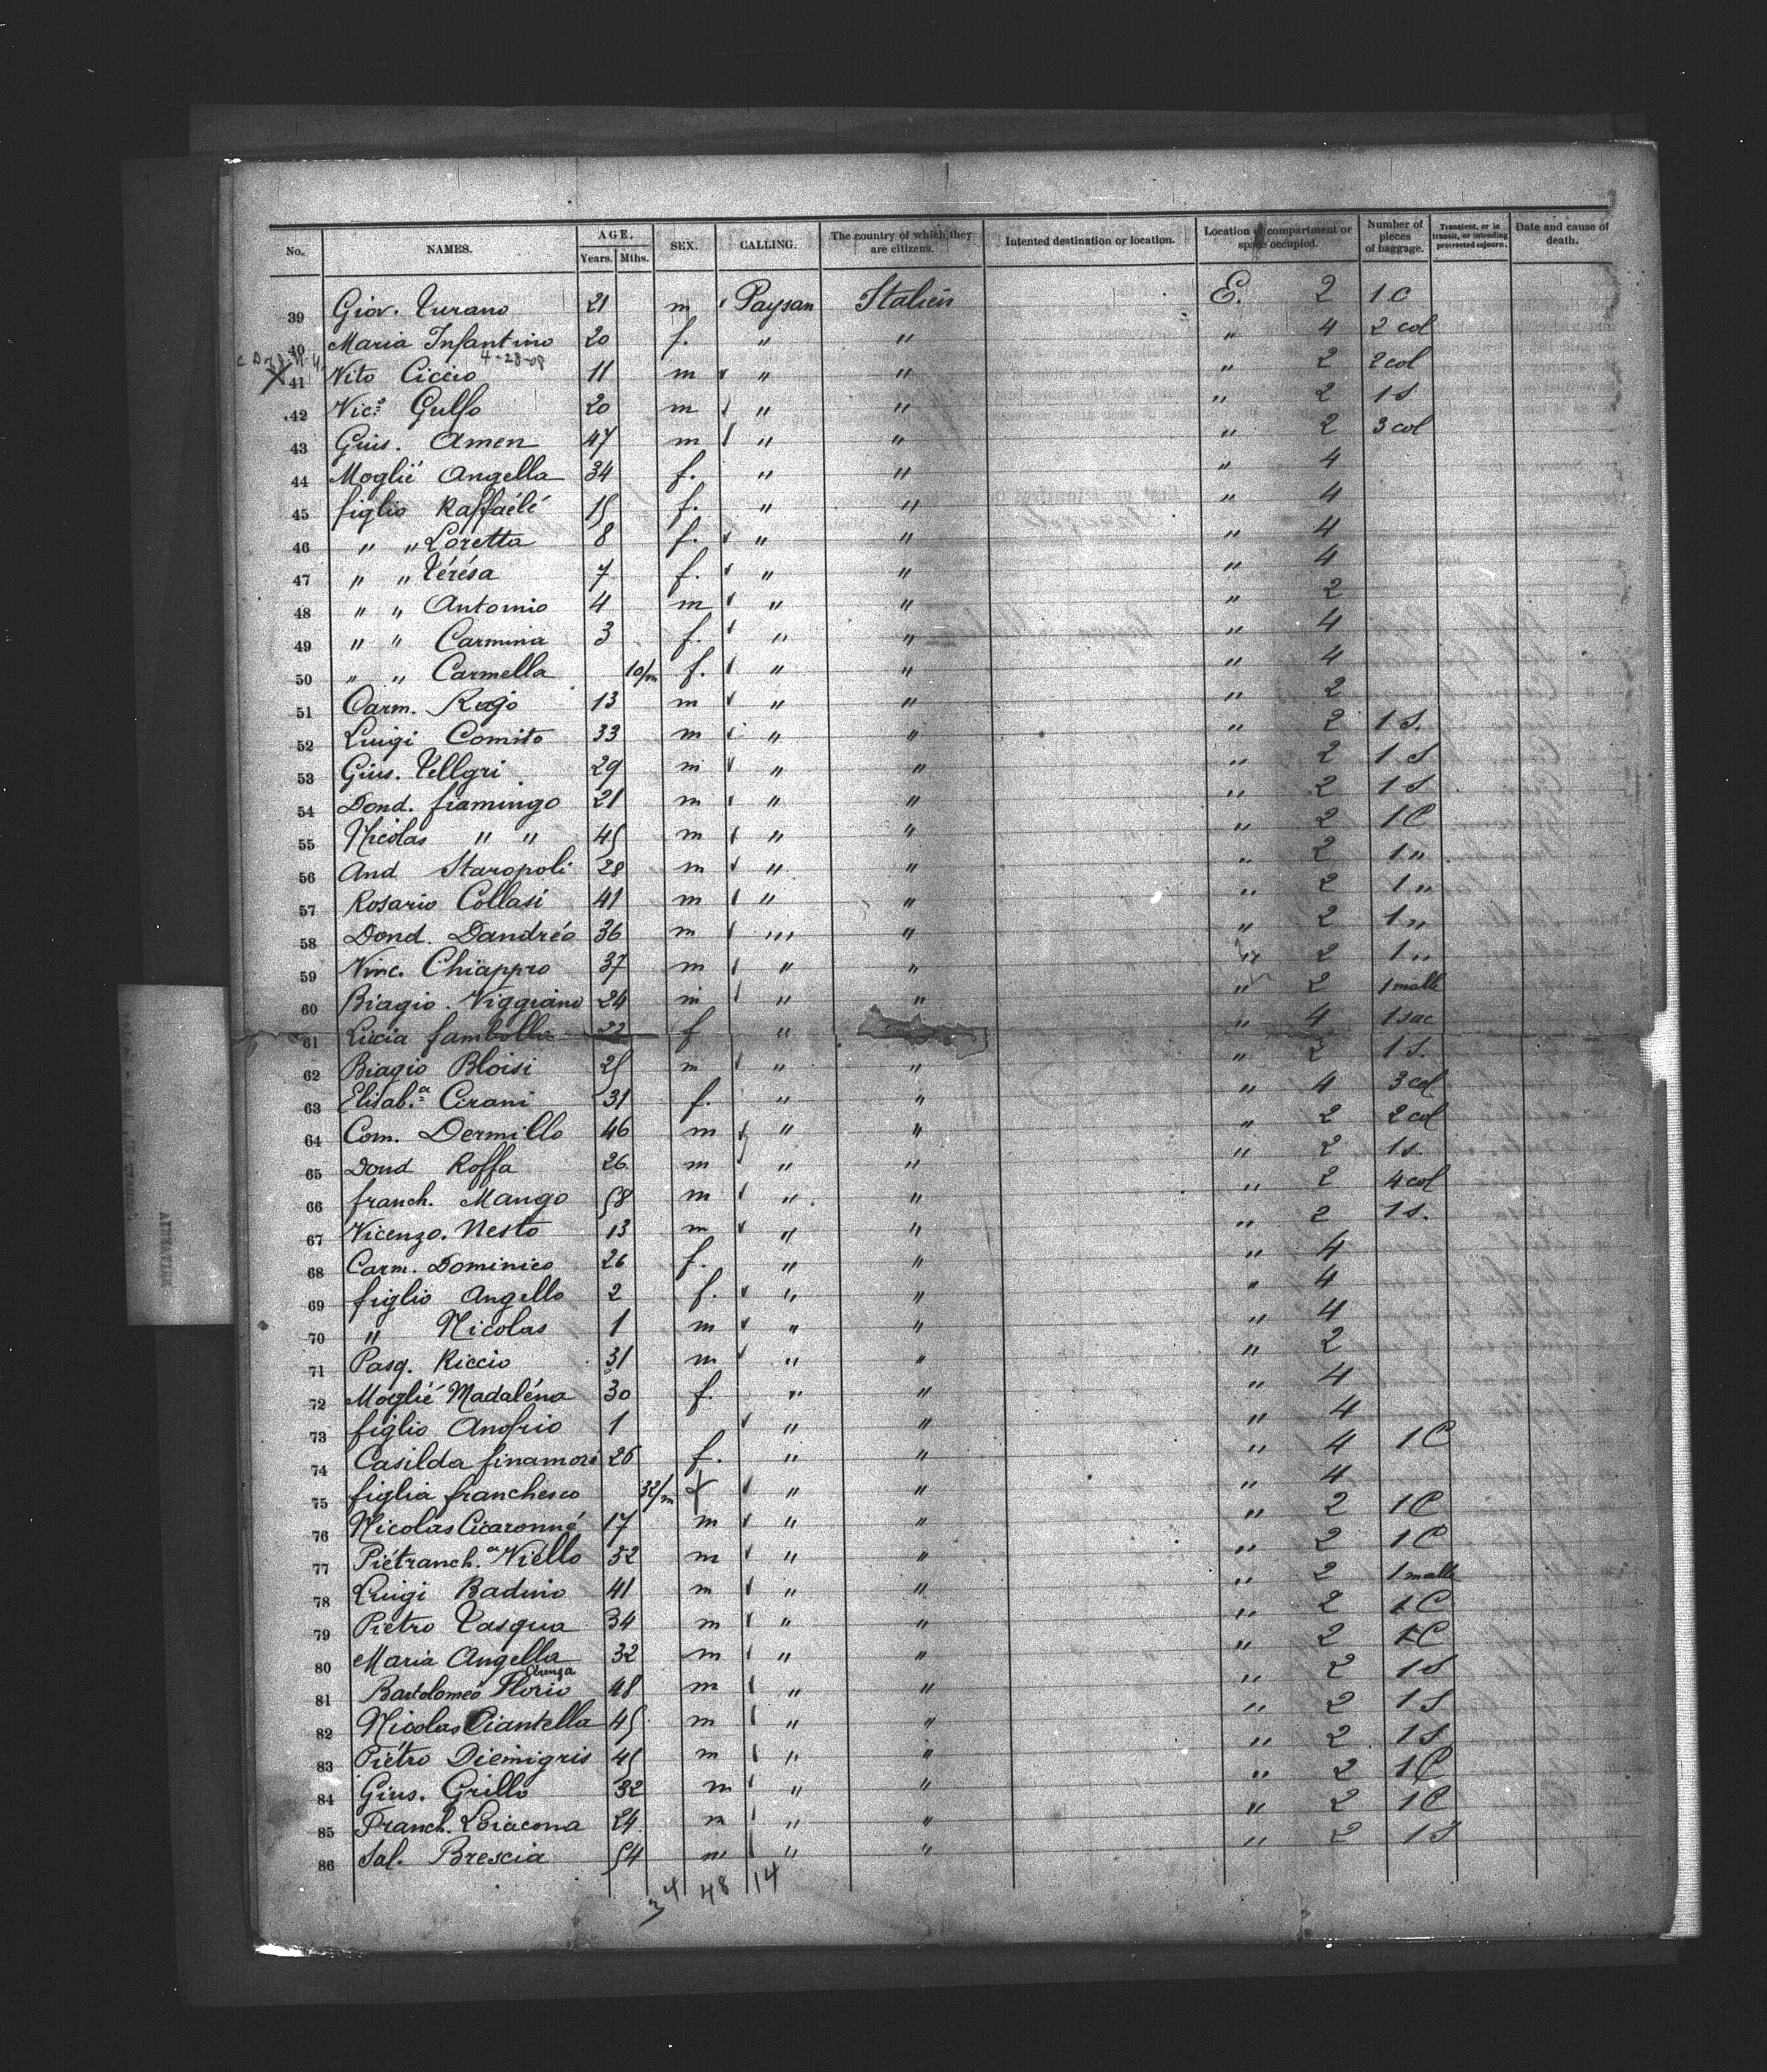 No. NAMES. AGE. Years. Mths. SEX. CALLING. The country of which they are citizens. Intented destination or location. Location of compartment or space occupied. Number of pieces of baggage. Transient, or in transit, or intending protracted sojourn. Date and cause of death.
39 Giov. Turano 21 m Paysan Italien E. 2 1 C
40 Maria Infantino 20 f. " " " 4 2 col
4-28-08
41 Vito Ciccio 11 m " " " 2 2 col
42 Nic.º Gulfo 20 m " " " 2 1 S
43 Gius. Amen 47 m " " " 2 3 col
44 Moglié Angella 34 f. " " " 4
45 figlio Raffaélé 15 f. " " " 4
46 " " Loretta 8 f. " " " 4
47 " " Térésa 7 f. " " " 4
48 " " Antonio 4 m " " " 2
49 " " Carmina 3 f. " " " 4
50 " " Carmella 10/m f. " " " 4
51 Carm. Rago 13 m " " " 2
52 Luigi Comito 33 m " " " 2 1 S.
53 Gius. Tellgri 29 m " " " 2 1 S
54 Dond. fiamingo 21 m " " " 2 1 S
55 Nicolas " " 45 m " " " 2 1 C
56 And Staropoli 28 m " " " 2 1 "
57 Rosario Collasi 41 m " " " 2 1 "
58 Dond. Dandréo 36 m " " " 2 1 "
59 Vinc. Chiappro 37 m " " " 2 1 "
60 Biagio. Viggiano 24 m " " " 2 1 malle
61 Lucia fambolla 22 f " " " 4 1 sac
62 Biagio Bloisi 25 m " " " 2 1 S.
63 Elisab.ª Cirani 31 f. " " " 4 3 col
64 Com. Dermillo 46 m " " " 2 2 col
65 Dond Roffa 26 m " " " 2 1 s.
66 franch. Mango 58 m " " " 2 4 col
67 Vicenzo. Nesto 13 m " " " 2 1 s.
68 Carm. Dominico 26 f. " " " 4
69 figlio Angello 2 f. " " " 4
70 " Nicolas 1 m " " " 4
71 Pasq. Riccio 31 m " " " 2
72 Moglié Madaléna 30 f. " " " 4
73 figlio Anofrio 1 " " " 4
74 Casilda finamoré 26 f. " " " 4 1 C
75 figlia franchesco 32/m f " " " 4
76 Nicolas Cicaronné 17 m " " " 2 1 C
77 Piétranch.ª Niello 52 m " " " 2 1 C
78 Luigi Baduio 41 m " " " 2 1 malle
79 Pietro Tasqua 34 m " " " 2 1 C
80 Maria Angella 32 m " " " 2 1 C
81 Bartolomeó Florio 48 m " " " 2 1 S
82 Nicolas Ciantella 45 m " " " 2 1 S
83 Piétro Diemigris 45 m " " " 2 1 S
84 Gius. Grillo 32 m " " " 2 1 C
85 Franch. Loiacona 24 m " " " 2 1 C
86 Sal. Brescia 54 m " " " 2 1 S
34 48 14